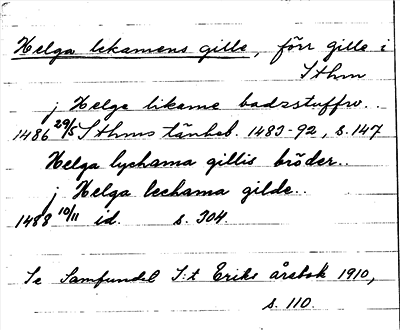 Helga lekamens gille, förr gille i
Sthm
j Helge likame badzstuffw..
1486 29/5 Sthms tänkeb. 1483-92, s. 147
Helga lychama gillis bröder..
j Helga lechama gilde..
1488 10/11 id. s. 304.
Se Samfundet S:t Eriks årsbok 1910,
s. 110.